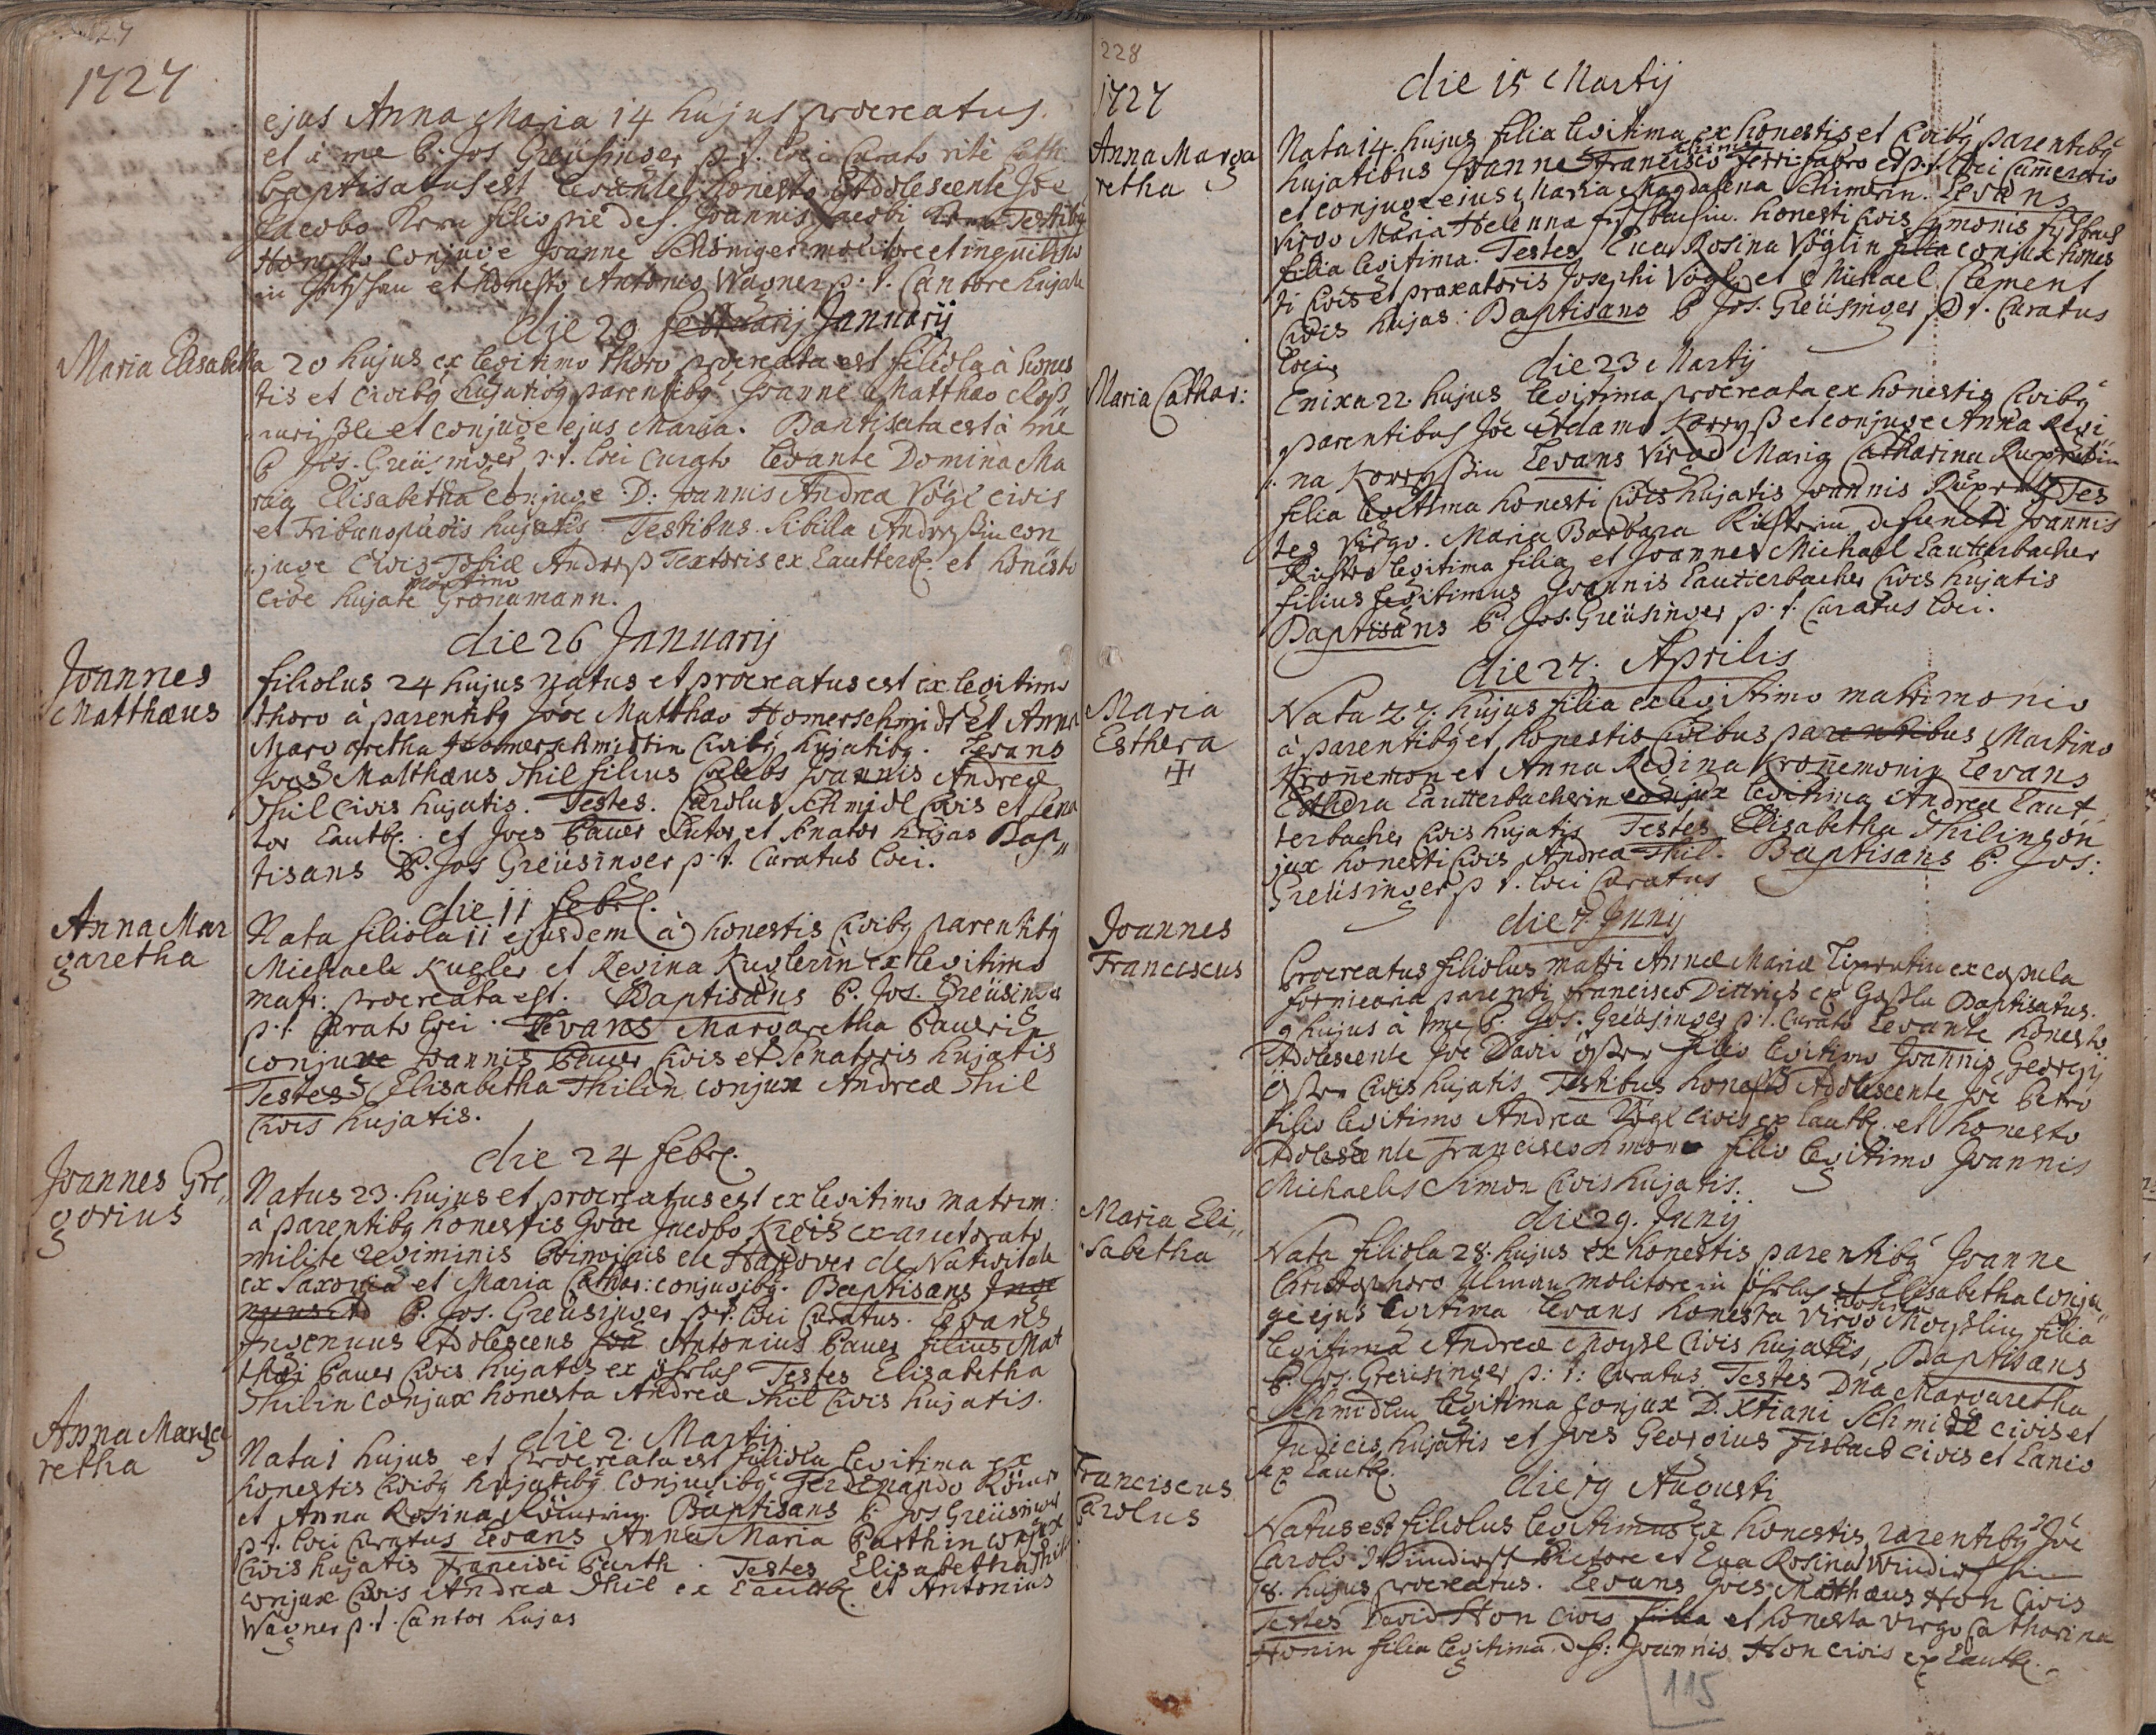 1727
ejus Anna Maria 14 hujus procreatus.
et à me P. Jos Greüsinger p. t. loci Curato rite Cath.
baptisatus est levante honesto Adolescente Joe
Jacobo filio pie def. Joannis Jacobi Testibg
Honesto Conjuge Joanne molitore et inquilino
in et honesto Antonio Wagner p. t. Cantore hujate
die 20 Januarij
Maria Elisabetha
20 hujus ex legitimo thoro procreata est filiola à hones
tis et civibg hujatibg parentibg Joanne Matthæo
et conjuge ejus Maria. Baptisata est à me
P Jos. Greüsinger p. t. loci Curato levante Domina Ma
ria Elisabetha conjuge D: Joannis Andreæ Vögl civis
et hujatis Testibus. Sibilla con
juge Civis Textoris ex Lautterb. et honesto
martino
cive hujate Gronamann.
die 26 Januarij
Joannes
Matthæus
filiolus 24 hujus natus et procreatus est ex legitimo
thoro à parentibg Joe Matthæo Homerschmidt et Anna
Margaretha Homerschmidtin Civibg hujatibg. Levans
Joes Matthæus Thil filius Cœlebs Joannis Andreæ
Thil civis hujatis. Testes. Carolus Schmidl Civis et Sena
tor Lautb. et Joes Pauer Sutor et Senator hujas Bap„
tisans P. Jos Greüsinger p. t. Curatus loci.
die 11 Febr.
Anna Mar
garetha
Nata filiola 11 ejusdem à honestis Civibg parentibg
Michaele Kugler et Regina Kuglerin ex legitimo
matr: procreata est. Baptisans P. Jos. Greüsinger
p. t. Curato loci. Levans Margaretha Pauerin
conjuge Joannis Pauer Civis et Senatoris hujatis
Testes Elisabetha Thilin conjux Andreæ Thil
Civis hujatis.
die 24 febr.
Joannes Gre„
gorius
Natus 23. hujus et procreatus est ex legitimo matrim:
à parentibg honestis Joe Jacobo Kreis exauctorato
milite regiminis de Hanover de Nativitate
ex Saxonia et Maria Cathar: conjugibg. Baptisans
P. Jos. Greüsinger p. t. loci Curatus. Levans
Ingenuus Adolescens Antonius Pauer filius Mat
thæi Pauer Civis hujatis ex Testes Elisabetha
Thilin Conjux honesta Andreæ Thil Civis hujatis.
die 2. Martij
Anna Marga
retha
Nata 1 hujus et procreata est filiola legitima ex
honestis Civibg hujatibg conjugibg Ferdinando
et Anna Rosina Baptisans P. Jos Greüsinger
p. t. loci Curatus Levans Anna Maria Barthin conjux
Civis hujatis Francisci Barth. Testes Elisabetha Thilin
conjux Civis Andreæ Thil ex Lautb. et Antonius
Wagner p. t. Cantor hujas
228
1727
die 15 Martij
Anna Marga
retha
Nata 14. hujus filia legitima ex honestis et Civibg parentibg
hujatibus Joanne Francisco ferri-fabro et p. t. loci Camerario
et conjuge ejus Maria Magdalena Schimerin. Levans
Virgo Maria Helenna honesti Civis Symonis
filia legitima. Testes Eva Rosina Vöglin Conjux hones
ti Civis et praxatoris Josephi Vögl et Michael Clement
Civis hujas. Baptisans P Jos. Greüsinger p. t. Curatus
loci.
die 23 Martij
Maria Cathar:
Enixa 22. hujus legitima procreata ex honestis Civibg
parentibus Joe Adamo et conjuge Anna Regi
na Levans Virgo Maria Catharina
filia legitima honesti Civis hujatis Joannis Tes
tes Virgo. Maria Barbara defuncti Joannis
legitima filia et Joannes Michael Lautterbacher
filius legitimus Joannis Lautterbacher Civis hujatis
Baptisans P. Jos. Greüsinger p. t. Curatus loci.
die 27. Aprilis
Maria
Esthera
Nata 27. hujus filia ex legitimo matrimonio
à parentibg et honestis Civibus parentibus Martino
Kronemon et Anna Regina Kronemonin Levans
Esthera Lautterbacherin conjux legitima Andreæ Laut
terbacher Civis hujatis Testes Elisabetha Thilin con
jux honesti Civis Andreæ Thil. Baptisans P. Jos:
Greüsinger p. t. loci Curatus
die 7. Junij
Joannes
Franciscus
Procreatus filiolus matri Annæ Mariæ ex copula
fornicaria parenti Francisco Dittrich ex Baptisatus.
9 hujus à me P. Jos. Greüsinger p. t. Curato Levante honesto
Adolescente Joe David filio legitimo Joannis Georgij
Civis hujatis Testibus honesto Adolescente Joe Petro
filio legitimo Andreæ Vögl civis ex Lautb. et honesto
Adolescente Francisco Simon filio legitimo Joannis
Michaelis Simon Civis hujatis.
die 29. Junij
Maria Eli„
sabetha
Nata filiola 28. hujus ex honestis parentibg Joanne
Christophoro Ulman molitore in et Elisabetha conju„
ge ejus legitima Levans honesta Virgo filia
legitima Andreæ Civis hujatis, Baptisans
P. Jos. Greüsinger p: t: Curatus Testes Dna Margaretha
Schmidlin legitima Conjux D. Xtiani Schmidl civis et
Judicis hujatis et Joes Georgius Fisbach civis et Lanio
ex Lautb.
die 19 Augusti
Franciscus
Carolus
Natus est filiolus legitimus ex honestis parentibg Joe
Carolo Windirsch Pictore et Eva Rosina Windirschin
18. hujus procreatus. Levans Joes Matthæus Hon Civis
Testes David Hon civis filia et honesta Virgo Catharina
Honin filia legitima def: Joannis Hon civis ex Lautb.
115